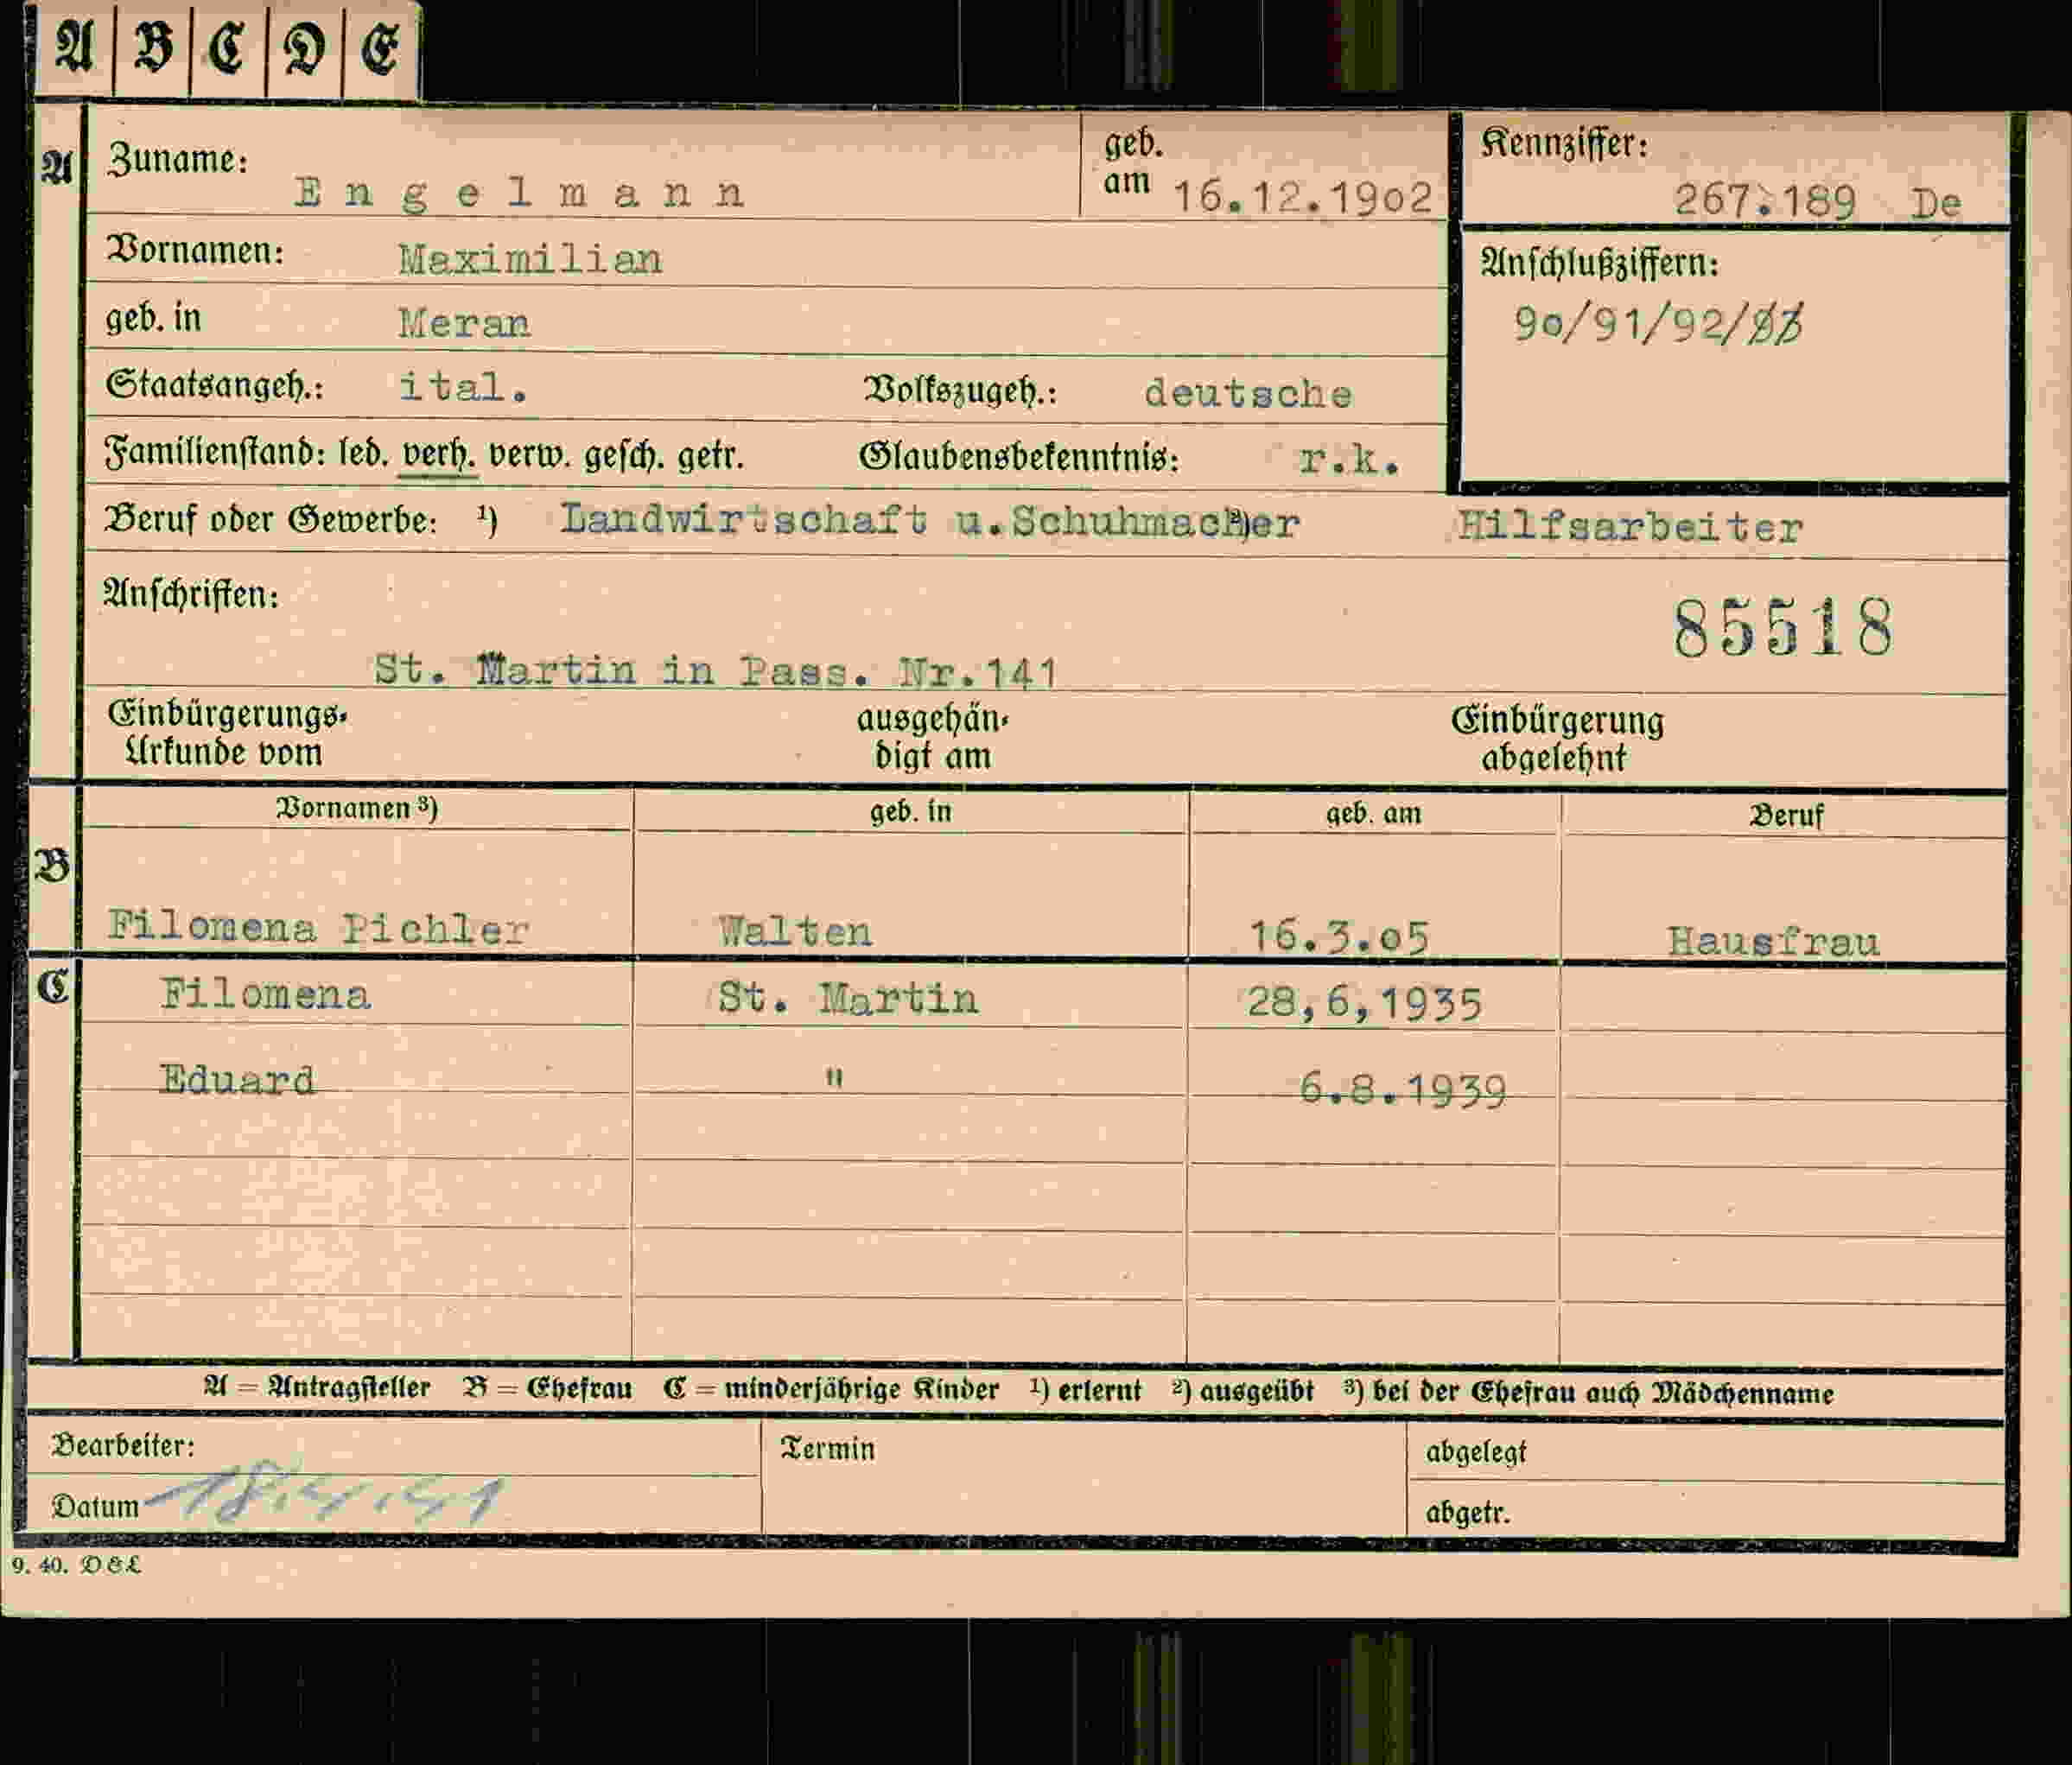 A B C D E
A Zuname: Engelmann geb. am 16.12.1902 Kennziffer: 267.189 De
Vornamen: Maximilian Anschlußziffern:
geb. in Meran 90/91/92/93
Staatsangeh.: ital. Volkszugeh.: deutsche
Familienstand: led. verh. verw. gesch. getr. Glaubensbekenntnis: r.k.
Beruf oder Gewerbe: ¹) Landwirtschaft u.Schuhmacher ²) Hilfsarbeiter
Anschriften: 85518
St. Martin in Pass. Nr.141
Einbürgerungs- ausgehän- Einbürgerung
Urkunde vom digt am abgelehnt
Vornamen ³) geb. in geb. am Beruf
B
Filomena Pichler Walten 16.3.05 Hausfrau
C Filomena St. Martin 28,6,1935
Eduard " 6.8.1939
A = Antragsteller B = Ehefrau C = minderjährige Kinder ¹) erlernt ²) ausgeübt ³) bei der Ehefrau auch Mädchenname
Bearbeiter: Termin abgelegt
Datum 18.4.41 abgetr.
9. 40. D&L